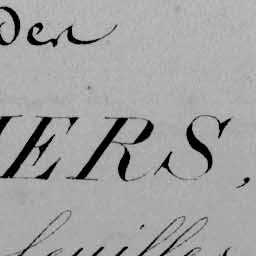 den
IERS,
feuilles